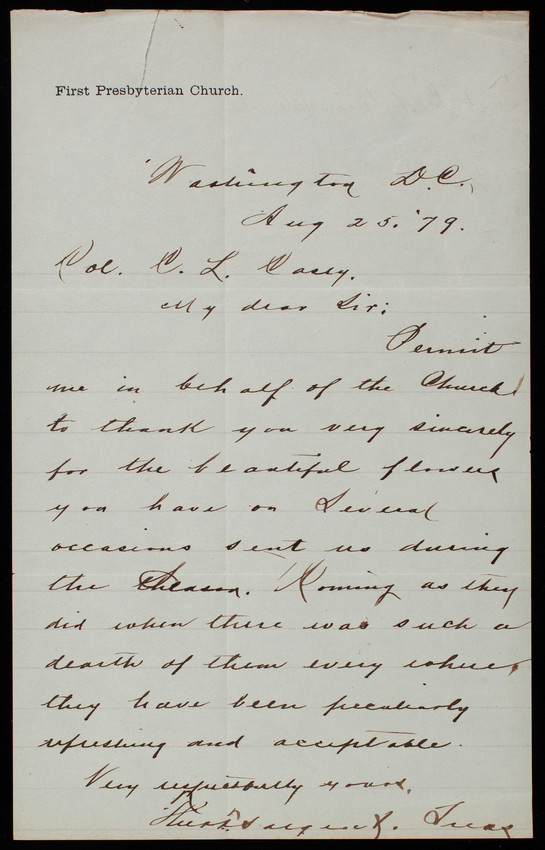 First Presbyterian Church.
Washington D.C.,
Aug 25. '79.
Col. C. L. Casey.
My dear Sir:
Permit
me in behalf of the Church
to thank you very sincerely
for the beautiful flowers
you have on several
occasions sent us during
the Season. Coming as they
did when there was such a
dearth of them every where,
they have been peculiarly
refreshing and acceptable.
Very respectfully yours,